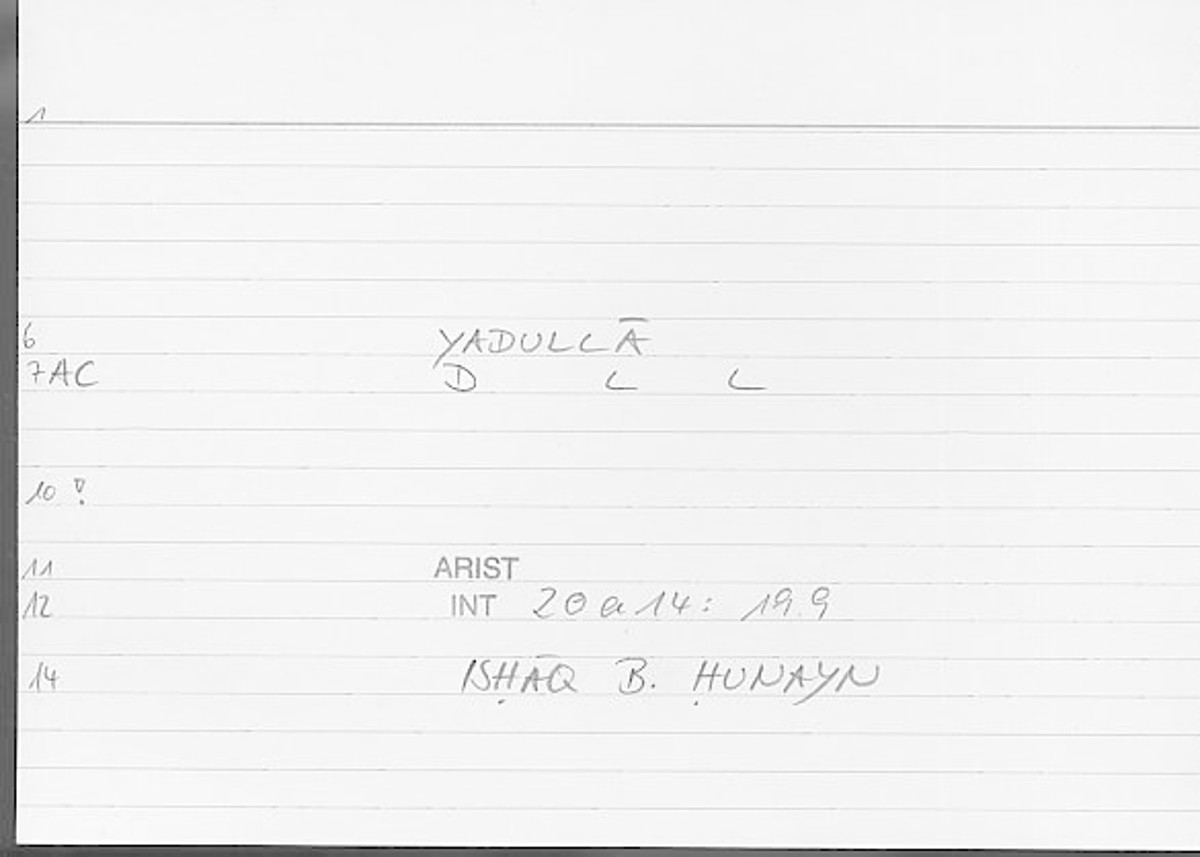 1
6 YADULLĀ
7AC D L L
10 !
11 ARIST
12 INT 20a14: 19.9
14 ISḤĀQ B. ḤUNAYN